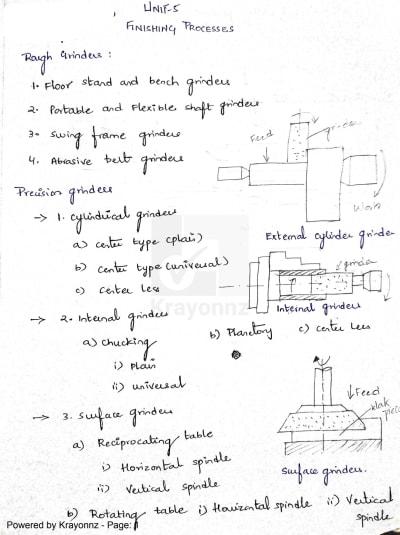 UNIT-5
FINISHING PROCESSES
Rough Grinders :
1. Floor stand and bench grinders
2. Portable and Flexible shaft grinders
3. Swing frame grinders
4. Abrasive belt grinders
Feed
grinder
Work
External cylinder grinder
Precision grinders
→ 1. cylindrical grinders
a) center type (plain)
b) center type (universal)
c) Center less
grinder
Internal grinders
Krayonnz
→ 2. Internal grinders
a) chucking b) Planetory c) center less
i) plain
ii) universal
→ 3. Surface grinders
a) Reciprocating table
i) Horizontal spindle
ii) Vertical spindle
Feed
piece
Surface grinders.
b) Rotating table i) Horizontal spindle ii) Vertical
spindle
Powered by Krayonnz - Page: 1